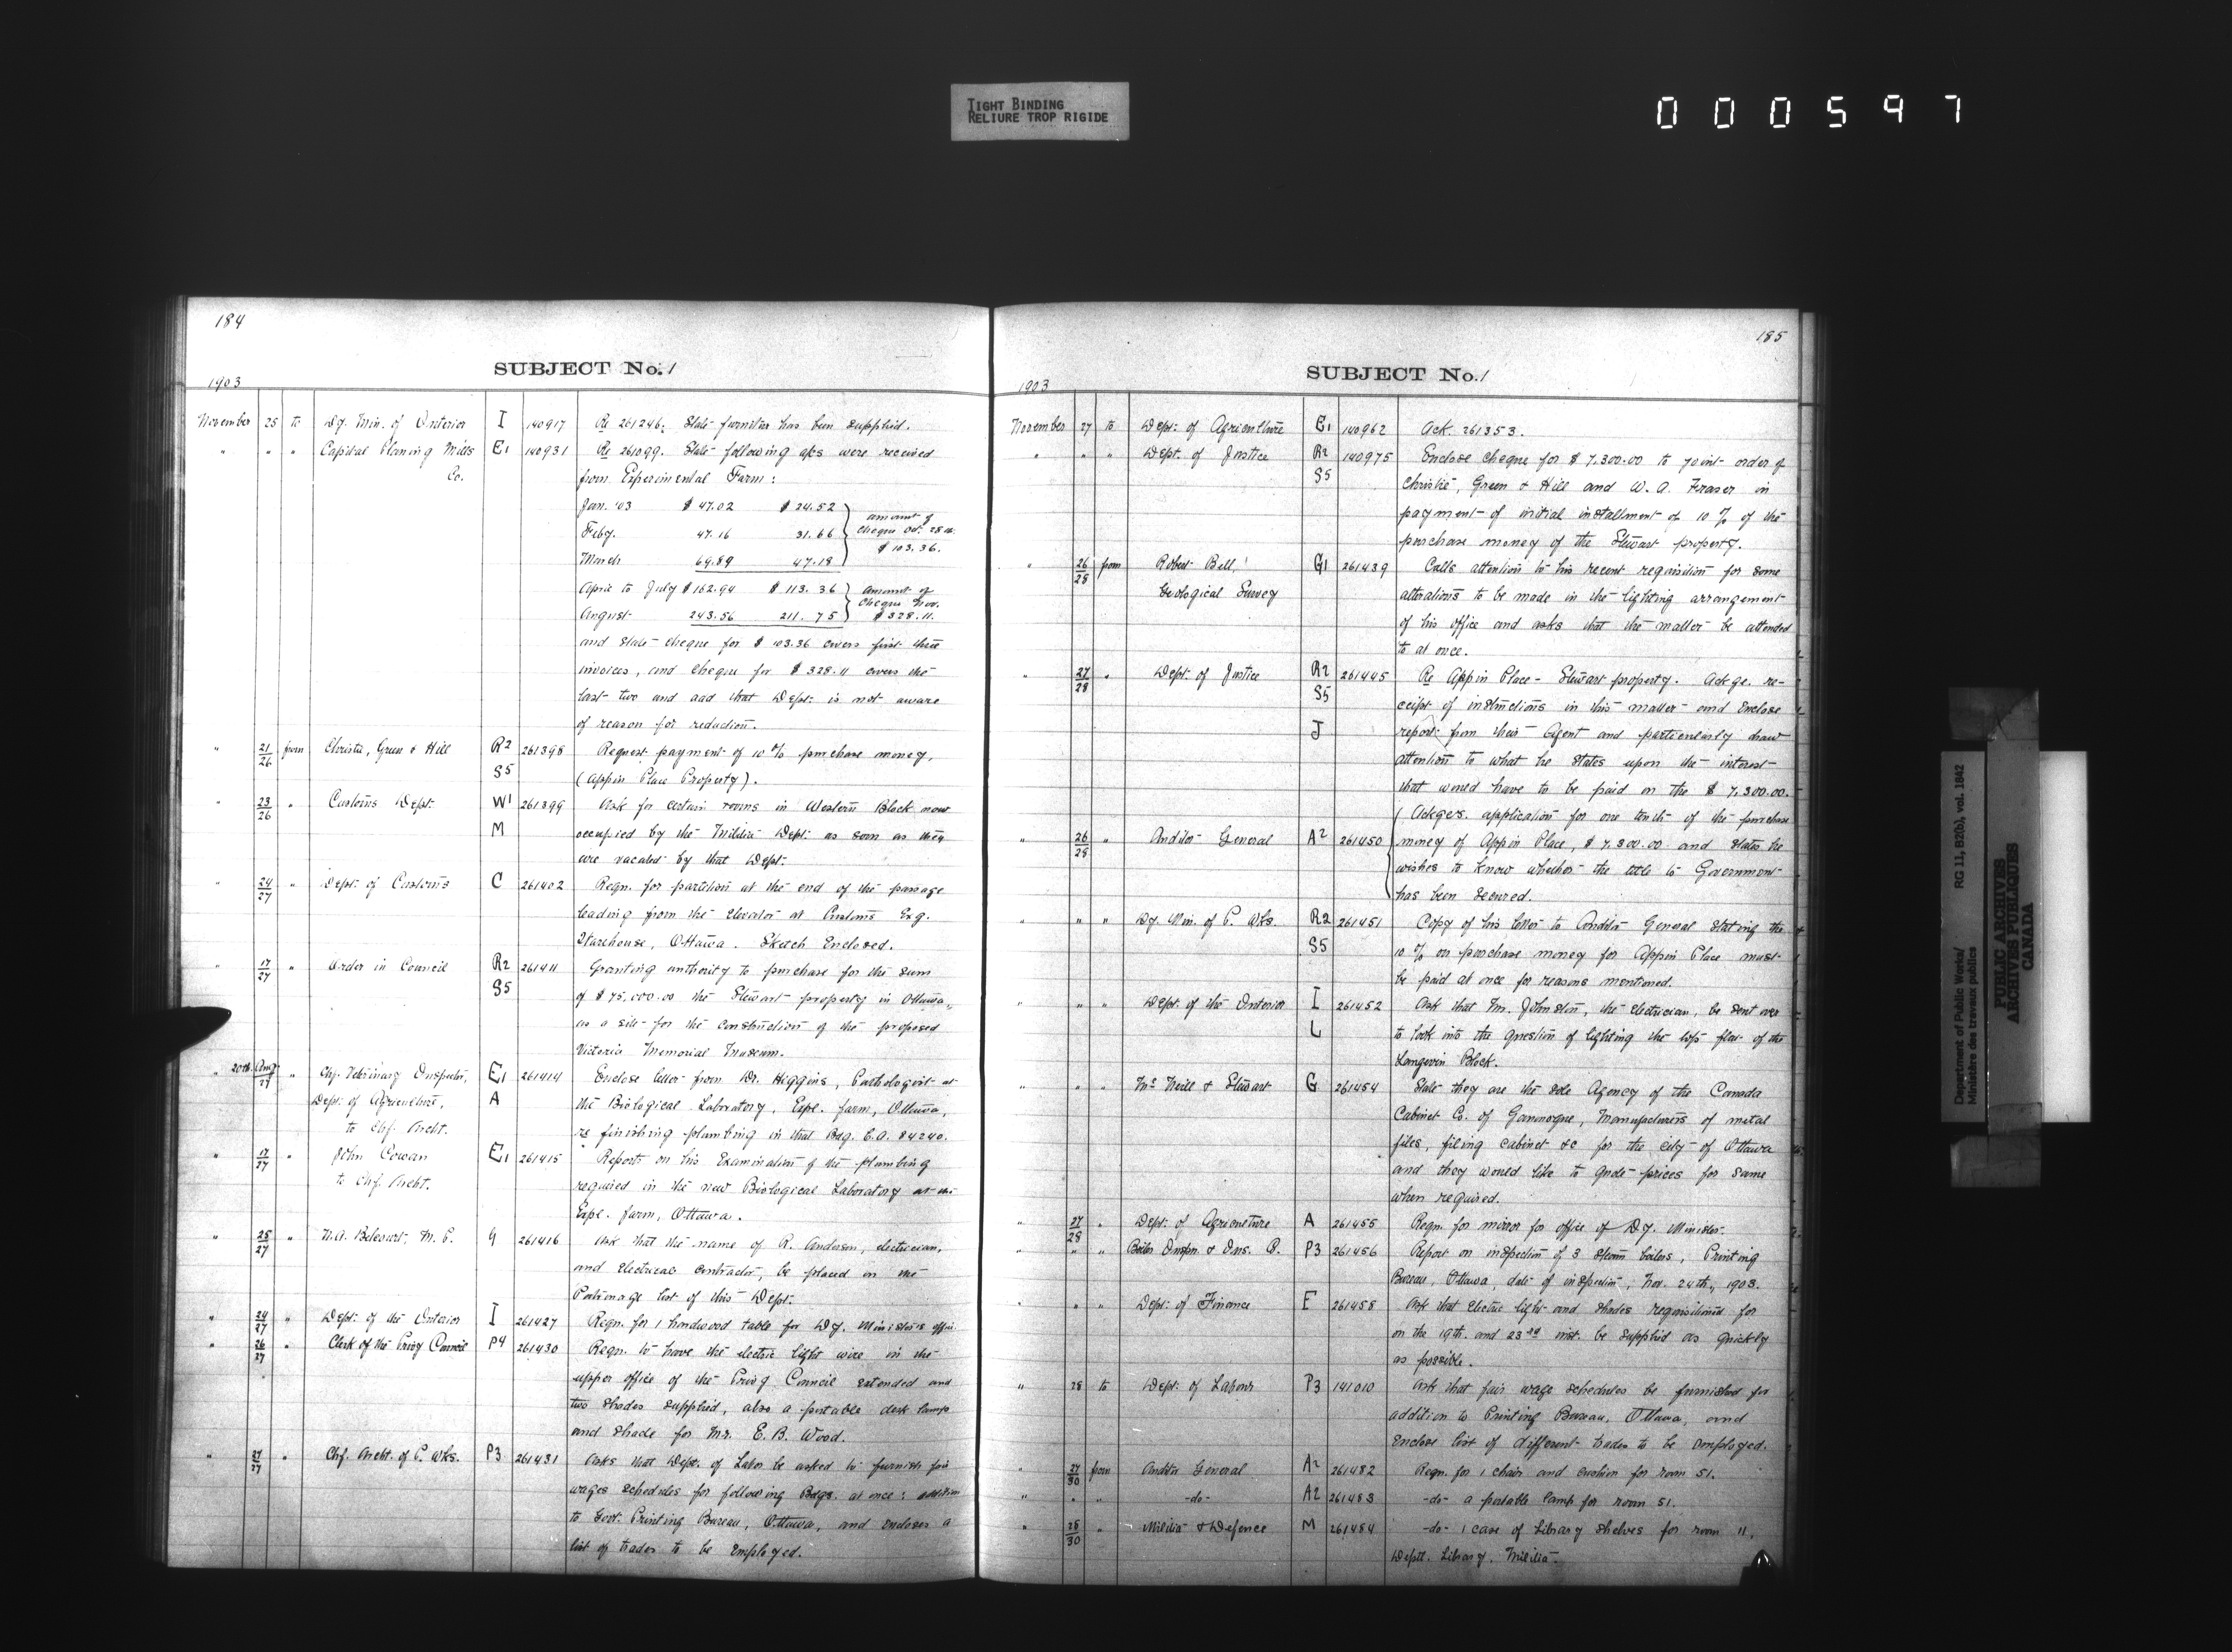 TIGHT BINDING
RELIURE TROP RIGIDE
000597
184
SUBJECT No. 1
1903
November 25 to Dy. Min. of Interior I 140917 Re 261246. State furniture has been supplied.
" " " Capital Planing Mills E1 140931 Re 261099. State following a/cs were received
Co. from Experimental Farm:
Jan. '03 $ 47.02 $ 24.52
Feby. 47.16 31.66
March 69.89 47.18
amount of
cheque Oct. 28th
$ 103.36.
April to July $ 162.94 $ 113.36
August 243.56 211.75
amount of
cheque Nov.
$ 328.11.
and state cheque for $ 103.36 covers first three
invoices, and cheque for $ 328.11 covers the
last two and add that Dept. is not aware
of reason for reduction.
" 21/26 from Christie, Green & Hill R2 261398 Request payment of 10% purchase money,
S5 (Appin Place Property).
" 23/26 " Customs Dept. W1 261399 Ask for certain rooms in Western Block now
M occupied by the Militia Dept. as soon as they
are vacated by that Dept.
" 24/27 " Dept. of Customs C 261402 Reqn. for partition at the end of the passage
leading from the elevator at Customs Exg.
Warehouse, Ottawa. Sketch Enclosed.
" 17/27 " Order in Council R2 261411 Granting authority to purchase for the sum
S5 of $ 75,000.00 the Stewart property in Ottawa,
as a site for the construction of the proposed
Victoria Memorial Museum.
" 20th Aug/27 " Chf. Veterinary Inspector, E1 261414 Enclose letter from Dr. Higgins, Pathologist at
Dept. of Agriculture, A the Biological Laboratory, Expl. farm, Ottawa,
to Chf. Archt. re finishing plumbing in that Bdg. C.A. 84240.
" 17/27 " John Cowan E1 261415 Reports on his Examination of the plumbing
to Chf. Archt. required in the new Biological Laboratory at the
Expl. farm, Ottawa.
" 25/27 " N.A. Belcourt, M.P. G 261416 Ask that the name of R. Anderson, electrician,
and electrical contractor, be placed on the
Patronage list of this Dept.
" 24/27 " Dept. of the Interior I 261427 Reqn. for 1 hardwood table for Dy. Minister's office.
" 26/27 " Clerk of the Privy Council P4 261430 Reqn. to have the electric light wire in the
upper office of the Privy Council extended and
two shades supplied, also a portable desk lamp
and shade for Mr. E. B. Wood.
" 27/27 " Chf. Archt. of P. Wks. P3 261431 Asks that Dept. of Labor be asked to furnish fair
wages schedules for following Bdgs. at once: addition
to Govt. Printing Bureau, Ottawa, and encloses a
list of trades to be employed.
185
SUBJECT No. 1
1903
November 27 to Dept. of Agriculture E1 140962 Ack. 261353.
" " " Dept. of Justice R2 140975 Enclose cheque for $ 7,300.00 to joint order of
S5 Christie, Green & Hill and W. A. Fraser in
payment of initial installment of 10% of the
purchase money of the Stewart property.
" 26/28 from Robert Bell, G1 261439 Calls attention to his recent requisition for some
Geological Survey alterations to be made in the lighting arrangement
of his office and asks that the matter be attended
to at once.
" 27/28 " Dept. of Justice R2 261445 Re Appin Place - Stewart property. Ackge. re-
S5 ceipt of instructions in this matter and Enclose
J report from their Agent and particularly draw
attention to what he states upon the interest
that would have to be paid on the $ 7,300.00.
Ackges. application for one tenth of the purchase
" 26/28 " Auditor General A2 261450 money of Appin Place, $ 7,300.00 and states he
wishes to know whether the title to Government
has been secured.
" " " Dy. Min. of P. Wks. R2 261451 Copy of his letter to Auditor General stating the
S5 10% on purchase money for Appin Place must
be paid at once for reasons mentioned.
" " " Dept. of the Interior I 261452 Ask that Mr. Johnston, the electrician, be sent over
L to look into the question of lighting the top flat of the
Langevin Block.
" " " McNeill & Stewart G 261454 State they are the sole Agency of the Canada
Cabinet Co. of Gananoque, Manufacturers of metal
files, filing cabinet &c for the city of Ottawa
and they would like to quote prices for same
when required.
" 27/28 " Dept. of Agriculture A 261455 Reqn. for mirror for office of Dy. Minister.
" " " Boiler Inspn. & Ins. P3 261456 Report on inspection of 3 steam boilers, Printing
Bureau, Ottawa, date of inspection, Nov. 24th, 1903.
" " " Dept. of Finance F 261458 Ask that electric light and shades requisitioned for
on the 19th. and 23rd inst. be supplied as quickly
as possible.
" 28 to Dept. of Labour P3 141010 Ask that fair wage schedules be furnished for
addition to Printing Bureau, Ottawa, and
Enclose list of different trades to be employed.
" 27/30 from Auditor General A2 261482 Reqn. for 1 chair and cushion for room 51.
" " " -do- A2 261483 -do- a portable lamp for room 51.
" 28/30 " Militia & Defence M 261484 -do- 1 case of Library shelves for room 11,
Deptl. Library. Militia.
Department of Public Works/
Ministre des travaux publics
RG 11, B2(b), vol. 1842
PUBLIC ARCHIVES
ARCHIVES PUBLIQUES
CANADA